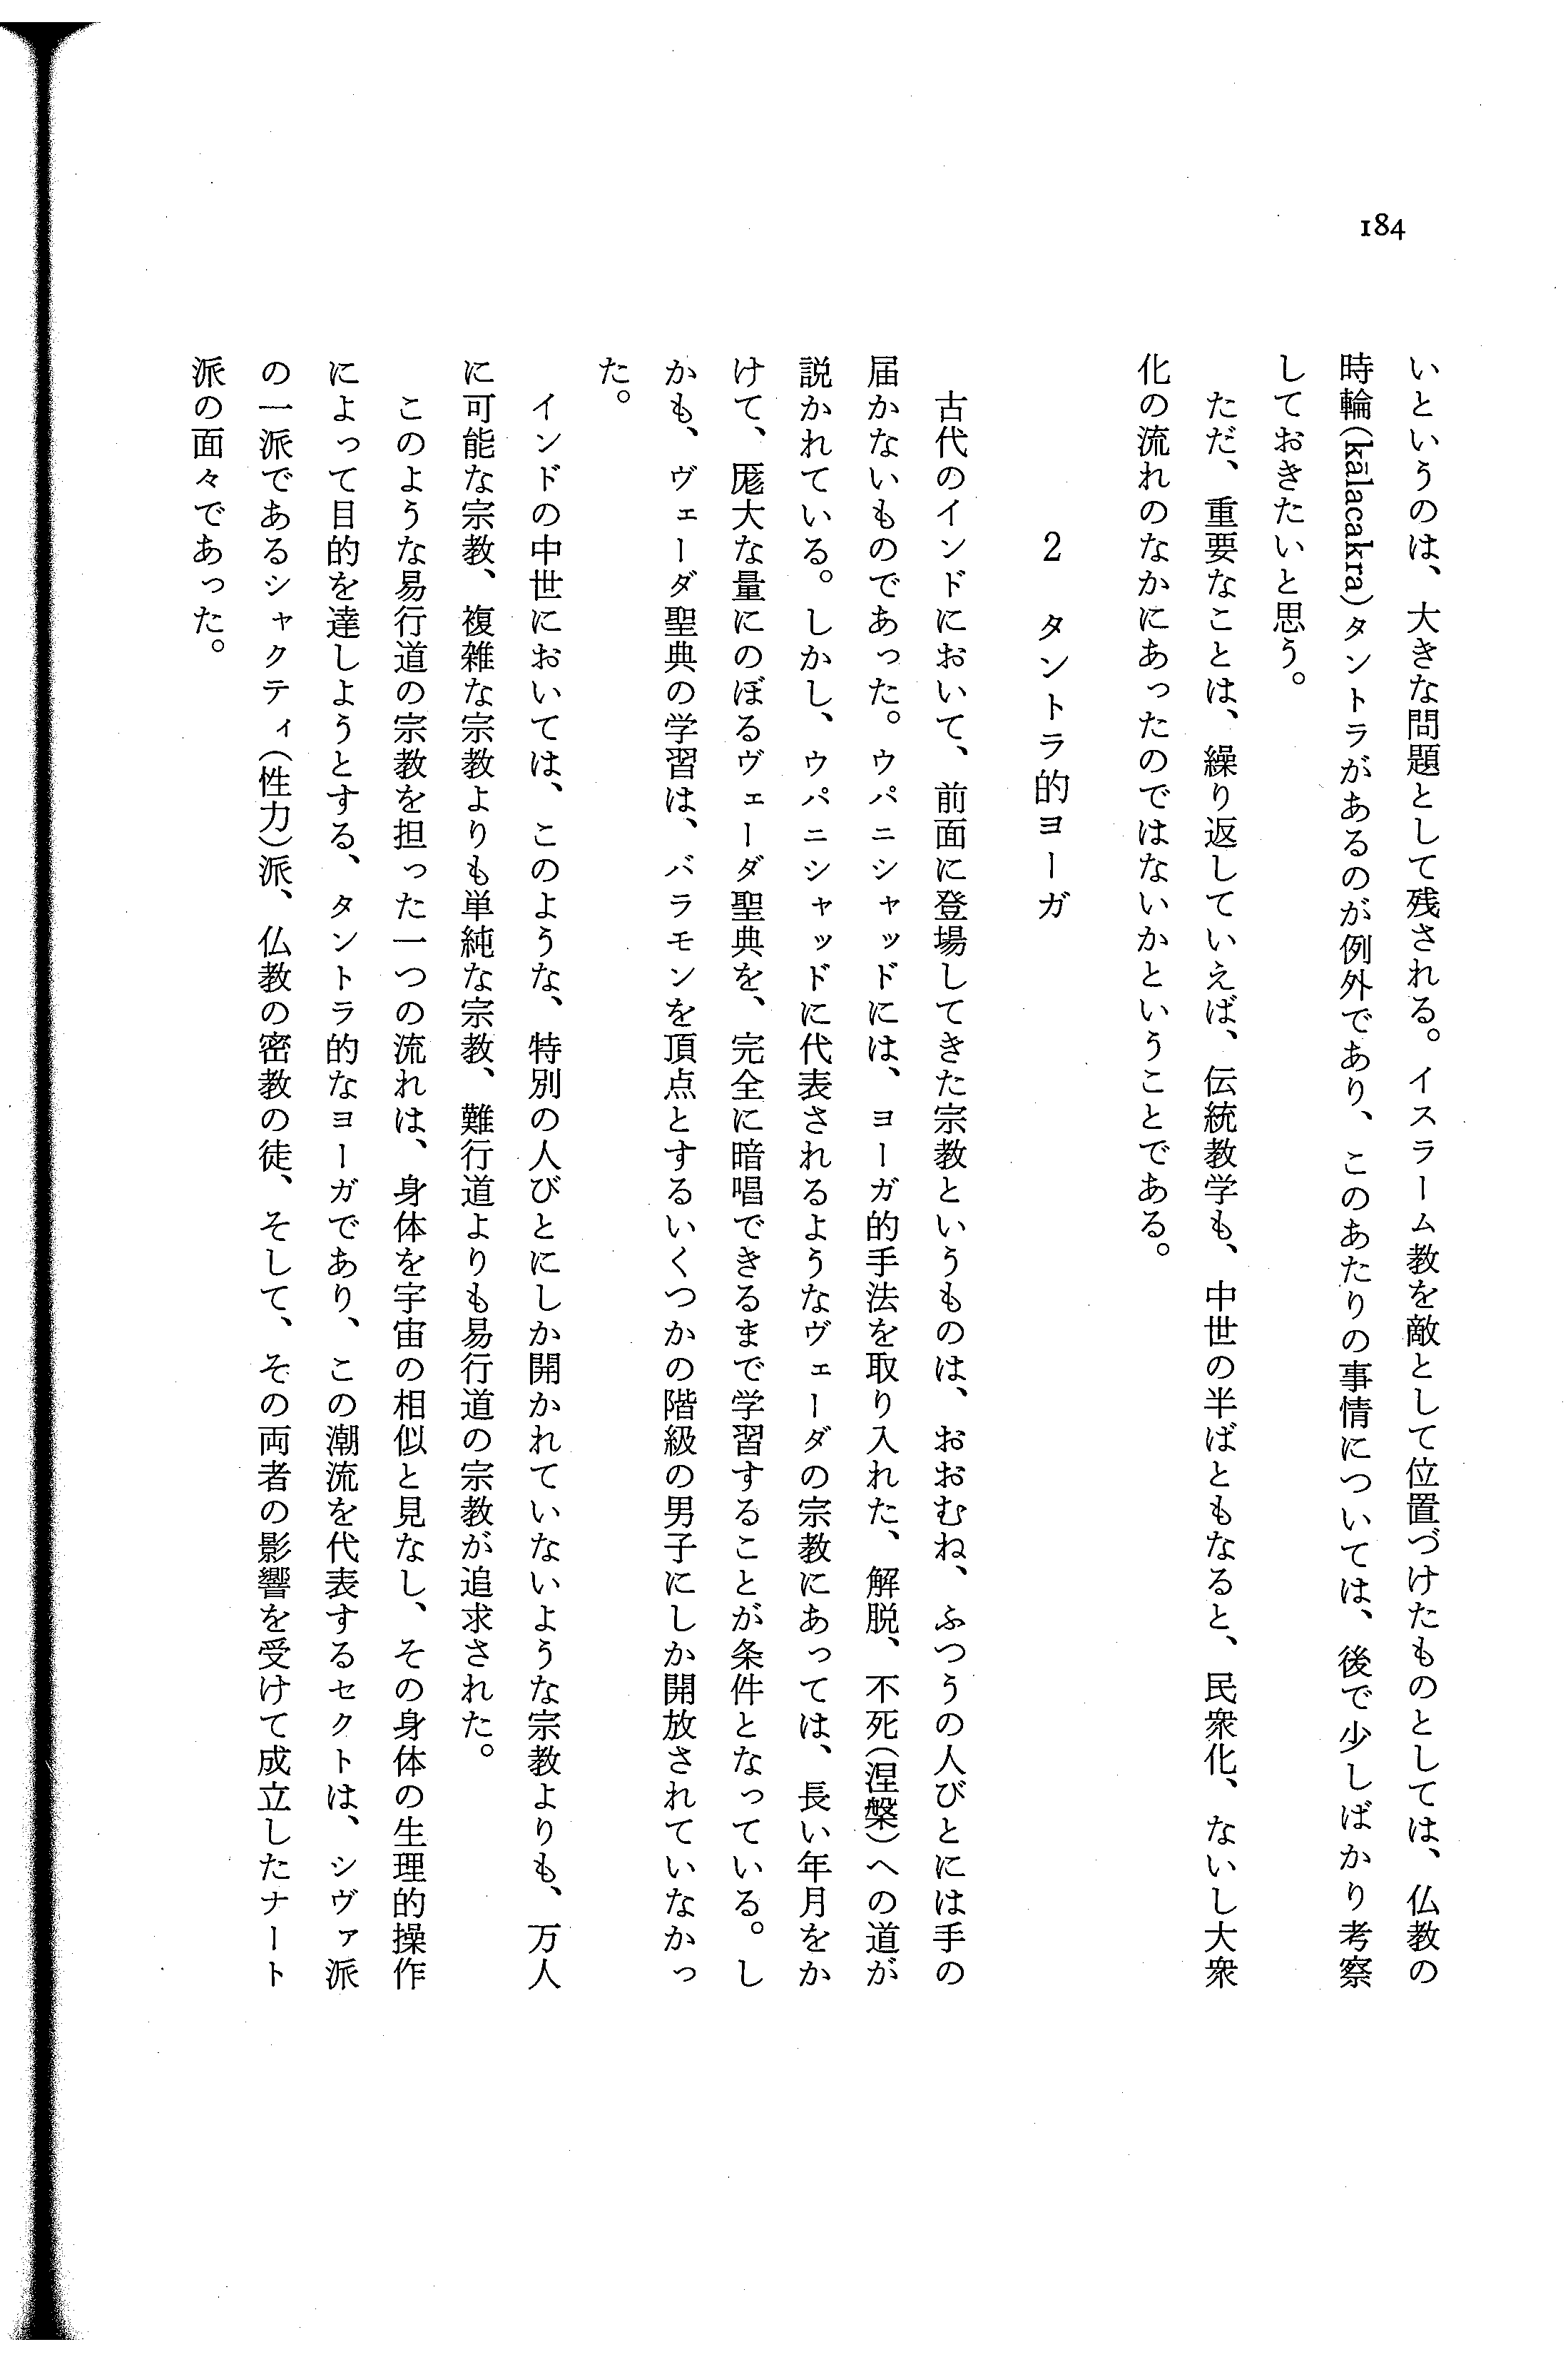 184
いというのは、大きな問題として残される。イスラーム教を敵として位置づけたものとしては、仏教の
時輪(kālacakra)タントラがあるのが例外であり、このあたりの事情については、後で少しばかり考察
しておきたいと思う。
ただ、重要なことは、繰り返していえば、伝統教学も、中世の半ばともなると、民衆化、ないし大衆
化の流れのなかにあったのではないかということである。
2 タントラ的ヨーガ
古代のインドにおいて、前面に登場してきた宗教というものは、おおむね、ふつうの人びとには手の
届かないものであった。ウパニシャッドには、ヨーガ的手法を取り入れた、解脱、不死(涅槃)への道が
説かれている。しかし、ウパニシャッドに代表されるようなヴェーダの宗教にあっては、長い年月をか
けて、厖大な量にのぼるヴェーダ聖典を、完全に暗唱できるまで学習することが条件となっている。し
かも、ヴェーダ聖典の学習は、バラモンを頂点とするいくつかの階級の男子にしか開放されていなかっ
た。
インドの中世においては、このような、特別の人びとにしか開かれていないような宗教よりも、万人
に可能な宗教、複雑な宗教よりも単純な宗教、難行道よりも易行道の宗教が追求された。
このような易行道の宗教を担った一つの流れは、身体を宇宙の相似と見なし、その身体の生理的操作
によって目的を達しようとする、タントラ的なヨーガであり、この潮流を代表するセクトは、シヴァ派
の一派であるシャクティ(性力)派、仏教の密教の徒、そして、その両者の影響を受けて成立したナート
派の面々であった。